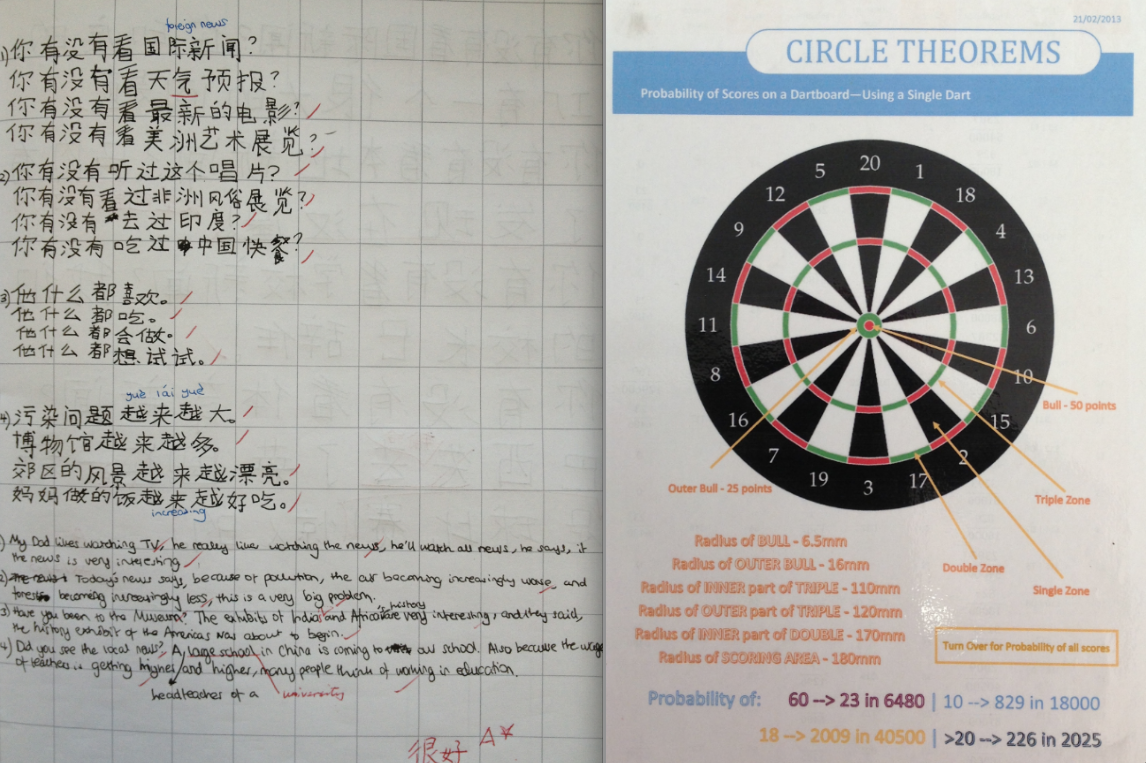 foreign news
1) 你有没有看国际新闻?
你有没有看天气预报?
你有没有看最新的电影?
你有没有看美洲艺术展览?
2) 你有没有听过这个唱片?
你有没有看过非洲风俗展览?
你有没有去过印度?
你有没有吃过中国快餐?
3) 他什么都喜欢。
他什么都吃。
他什么都会做。
他什么都想试试。
yuè lái yuè
4) 污染问题越来越大。
博物馆越来越多。
郊区的风景越来越漂亮。
妈妈做的饭越来越好吃。
increasing
1) My Dad likes watching TV, he really likes watching the news, he'll watch all news, he says, it
the news is very interesting.
2) Today's news says, because of pollution, the air becoming increasingly worse, and
forests becoming increasingly less, this is a very big problem.
's history
3) Have you been to the Museum? The exhibits of India and Africa are very interesting, and they said,
the history exhibit of the Americas was about to begin.
4) Did you see the local news? A large school in China is coming to our school. Also because the wage
of teachers is getting higher and higher, many people think of working in education.
headteacher of a university
很好 A*
21/02/2013
CIRCLE THEOREMS
Probability of Scores on a Dartboard—Using a Single Dart
20
5 1
12 18
9 4
14 13
11 6
8 10
16 15
7 2
19 17
3
Bull - 50 points
Outer Bull - 25 points
Triple Zone
Double Zone
Single Zone
Radius of BULL - 6.5mm
Radius of OUTER BULL - 16mm
Radius of INNER part of TRIPLE - 110mm
Radius of OUTER part of TRIPLE - 120mm
Radius of INNER part of DOUBLE - 170mm
Radius of SCORING AREA - 180mm
Turn Over for Probability of all scores
Probability of: 60 --> 23 in 6480 | 10 --> 829 in 18000
18 --> 2009 in 40500 | >20 --> 226 in 2025